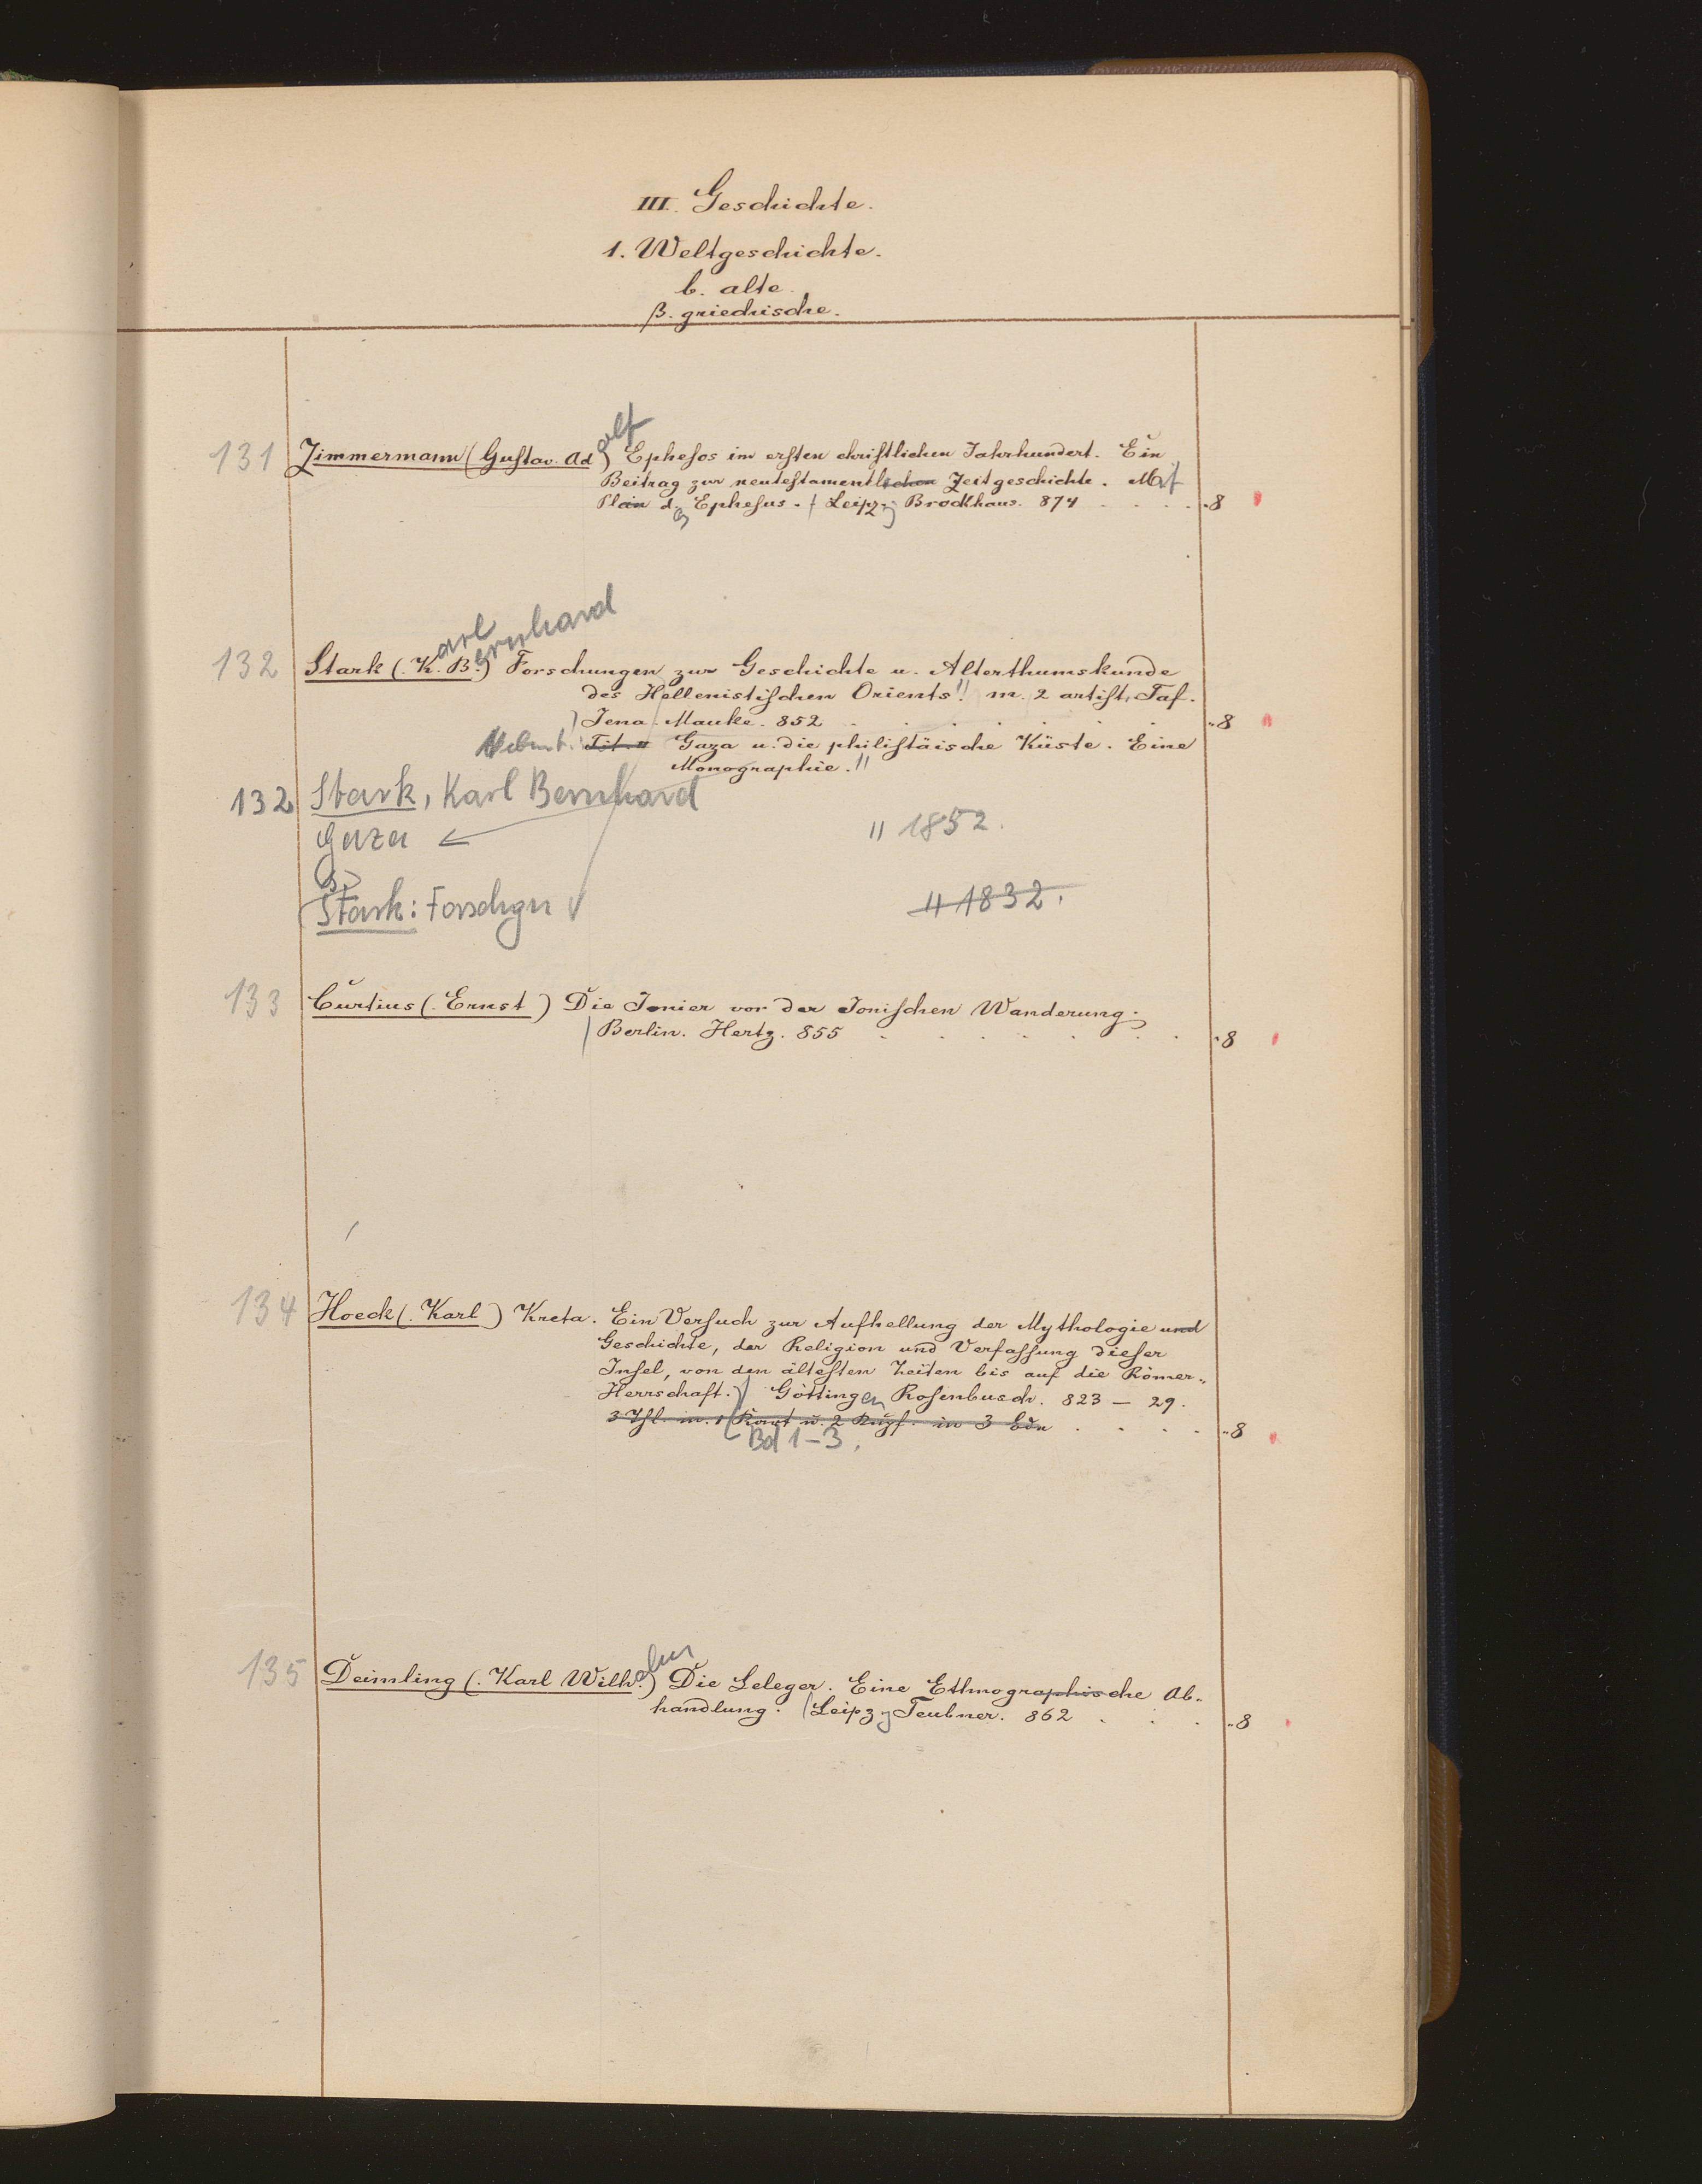 III. Geschichte.
1. Weltgeschichte.
b. alte.
β. griechische.
131 Zimmermann (Gustav. Ad olf) Ephesos im ersten christlichen Jahrhundert. Ein
Beitrag zur neutestamentlichen Zeitgeschichte. Mit
Plan d. Ephesus. Leipzg Brockhaus. 874 . . . . "8
arl ernhard
132 Stark (. K. B.) Forschungen zur Geschichte u. Alterthumskunde
des Hellenistischen Orients!! m. 2 artist. Taf.
Jena. Mauke. 852 . . . . . . "8
Nebent. Tit. Gaza u. die philistäische Küste. Eine
Monographie. "
132 Stark, Karl Bernhard
Gaza " 1852.
s.
Stark: Forschgn " 1832.
133 Curtius (. Ernst) Die Ionier vor der Ionischen Wanderung.
Berlin. Hertz. 855 . . . . . . "8
134 Hoeck (. Karl) Kreta. Ein Versuch zur Aufhellung der Mythologie und
Geschichte, der Religion und Verfassung dieser
Insel, von den ältesten Zeiten bis auf die Römer-
Herrschaft. Göttingen Rosenbusch. 823 – 29.
3 Thl. m. 1 Kart u. 2 Kupf. in 3 Bdn . . . . "8
Bd 1–3.
135 Deimling (. Karl Wilh. elm) Die Leleger. Eine Ethnographische Ab-
handlung. Leipzg Teubner. 862 . . . "8